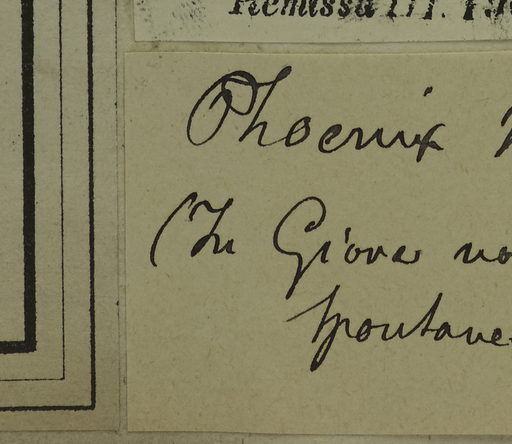 Remassa III. 19
Phoenix
(In Giova no
spontane